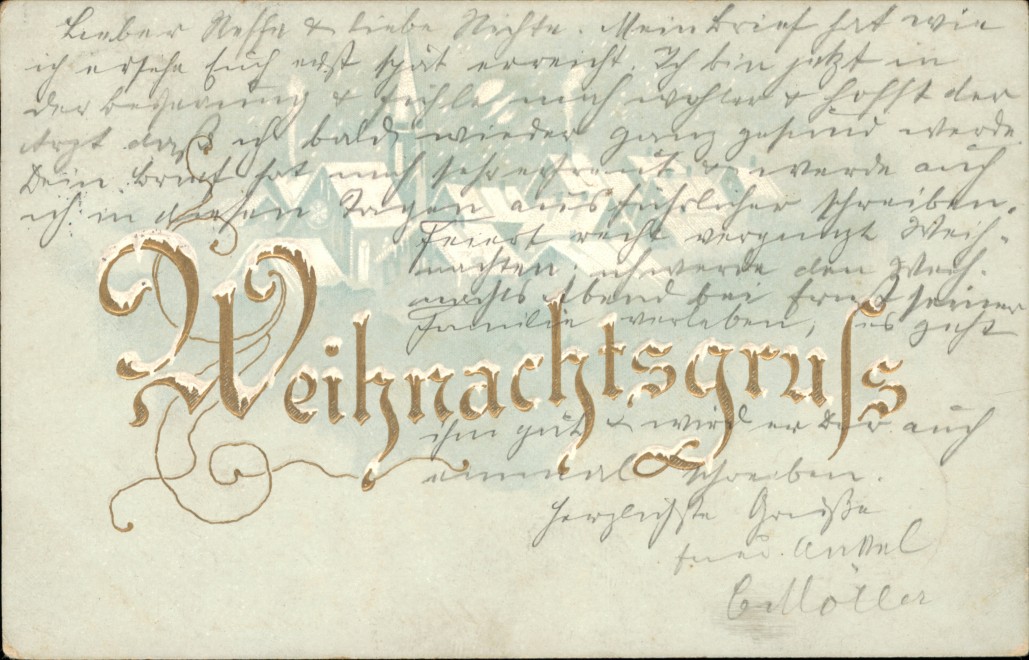 Lieber Neffe & liebe Nichte. Mein Brief hat wie
ich ersehe Euch erst spät erreicht. Ich bin jetzt in
der Besserung & fühle mich wohler & hofft der
Arzt daß ich bald wieder ganz gesund werde.
Dein Brief hat mich sehr erfreut & werde auch
ich in diesen Tagen ausführlicher schreiben.
Feiert recht vergnügt Weih-
nachten; ich werde den Weih-
nachts Abend bei Ernst seiner
Familie verleben, es geht
Weihnachtsgruss
ihm gut & wird er Dir auch
einmal schreiben.
Herzlichste Grüße
Onkel
C. Möller